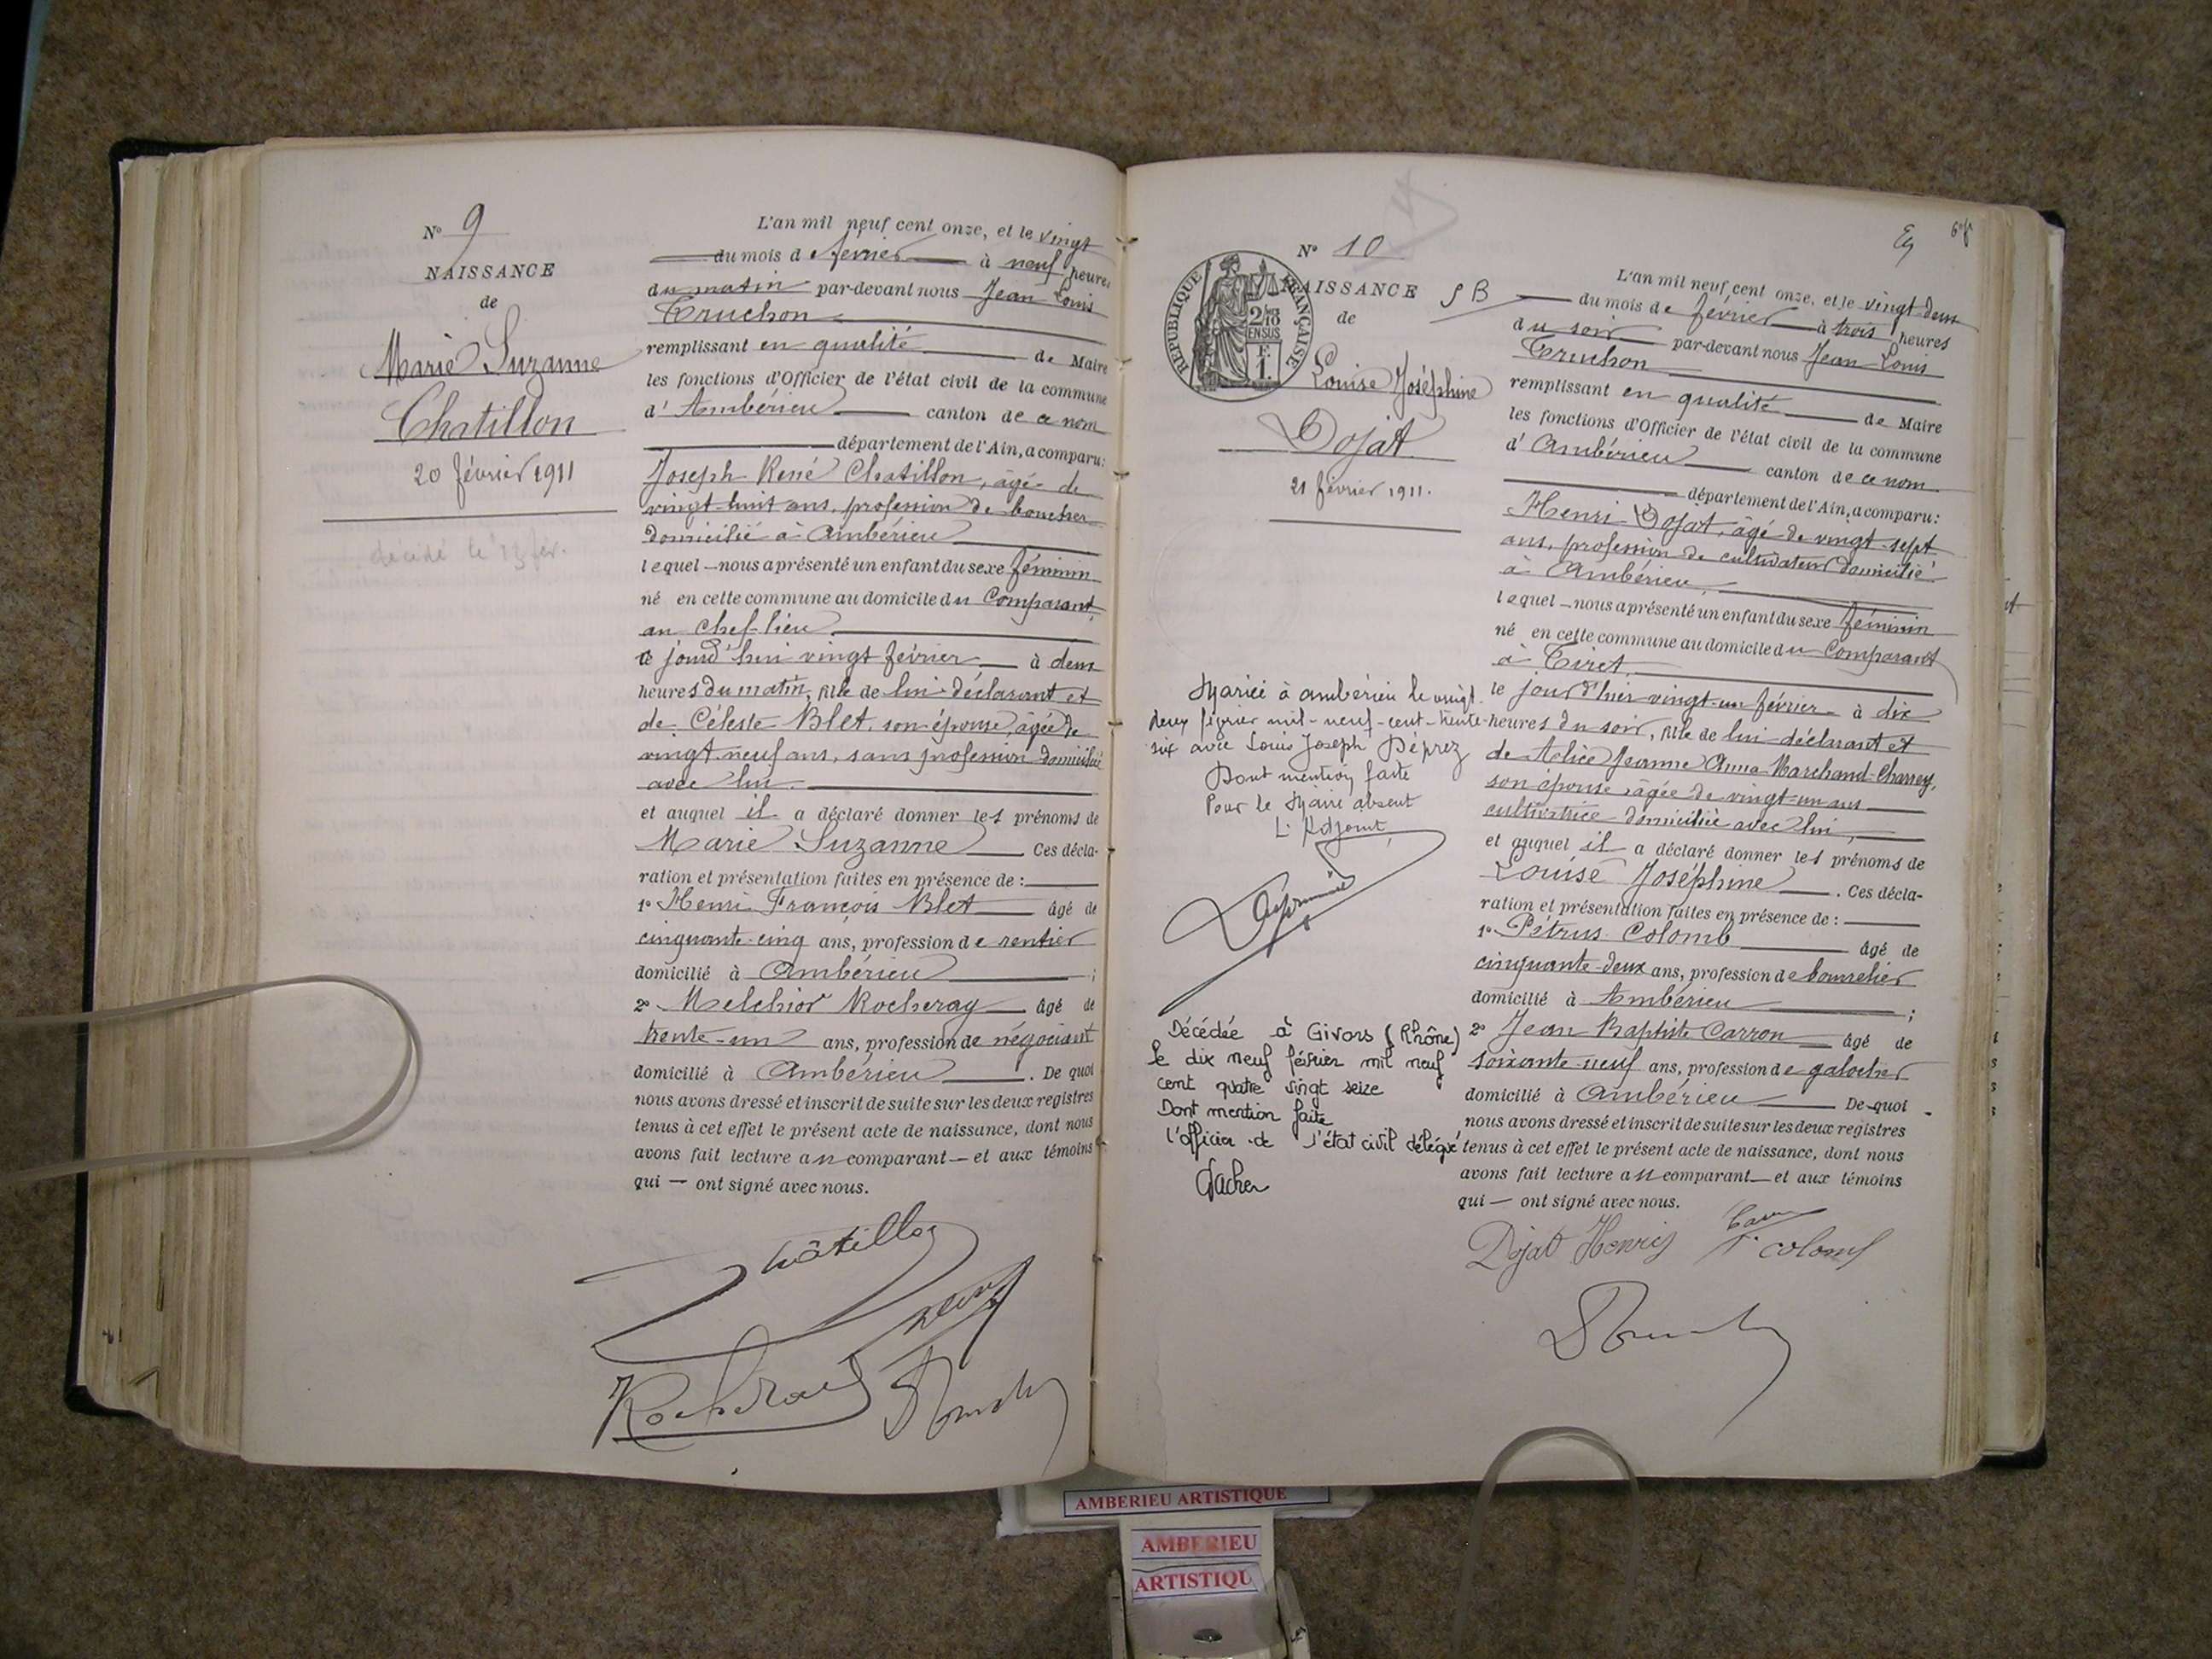 N° 9
NAISSANCE
de
Marie Suzanne
Chatillon
20 février 1911
décédé le fév.
L'an mil neuf cent onze, et le vingt
du mois de février à neuf heures
du matin par-devant nous Jean Louis
Truchon
remplissant en qualité de Maire
les fonctions d'Officier de l'état civil de la commune
d'Ambérieu canton de ce nom
département de l'Ain, a comparu:
Joseph René Chatillon, âgé de
vingt-huit ans, profession de boucher
domicilié à Ambérieu
lequel nous a présenté un enfant du sexe féminin
né en cette commune au domicile du Comparant
au Chef-lieu
ce jourd'hui vingt février à deux
heures du matin, fille de lui déclarant et
de Céleste Blet, son épouse, âgée de
vingt-neuf ans, sans profession domiciliée
avec lui.
et auquel il a déclaré donner les prénoms de
Marie Suzanne Ces décla-
ration et présentation faites en présence de :
1° Henri François Blet âgé de
cinquante-cinq ans, profession de rentier
domicilié à Ambérieu ;
2° Melchior Rocheray âgé de
trente-un ans, profession de négociant
domicilié à Ambérieu . De quoi
nous avons dressé et inscrit de suite sur les deux registres
tenus à cet effet le présent acte de naissance, dont nous
avons fait lecture au comparant et aux témoins
qui ont signé avec nous.
Châtillon
Rocheray
N° 10
NAISSANCE
de
SB
Louise Joséphine
Dojat
21 février 1911.
REPUBLIQUE FRANÇAISE
2/10
EN SUS
F.
1.
Mariée à ambérieu le vingt
deux février mil-neuf-cent-trente-
six avec Louis Joseph Déprez
Dont mention faite
Pour le Maire absent
L'Adjoint,
Décédée à Givors (Rhône)
le dix neuf février mil neuf
cent quatre vingt seize
Dont mention faite
l'officier de l'état civil délégué
L'an mil neuf cent onze, et le vingt deux
du mois de février à trois heures
du soir par-devant nous Jean Louis
Truchon
remplissant en qualité de Maire
les fonctions d'Officier de l'état civil de la commune
d'Ambérieu canton de ce nom
département de l'Ain, a comparu:
Henri Dojat, âgé de vingt-sept
ans, profession de cultivateur domicilié
à Ambérieu,
lequel nous a présenté un enfant du sexe féminin
né en cette commune au domicile du Comparant
à Tiret,
le jour d'hier vingt-un février à dix
heures du soir, fille de lui déclarant et
de Alice Jeanne Anna Marchand-Charrey,
son épouse, âgée de vingt-un ans
cultivatrice domiciliée avec lui,
et auquel il a déclaré donner les prénoms de
Louise Joséphine . Ces décla-
ration et présentation faites en présence de :
1° Pétrus Colomb âgé de
cinquante-deux ans, profession de bourrelier
domicilié à Ambérieu ;
2° Jean Baptiste Carron âgé de
soixante-neuf ans, profession de galochier
domicilié à Ambérieu De quoi
nous avons dressé et inscrit de suite sur les deux registres
tenus à cet effet le présent acte de naissance, dont nous
avons fait lecture au comparant et aux témoins
qui ont signé avec nous.
Dojat Henri colomb
AMBERIEU ARTISTIQUE
AMBERIEU
ARTISTIQU